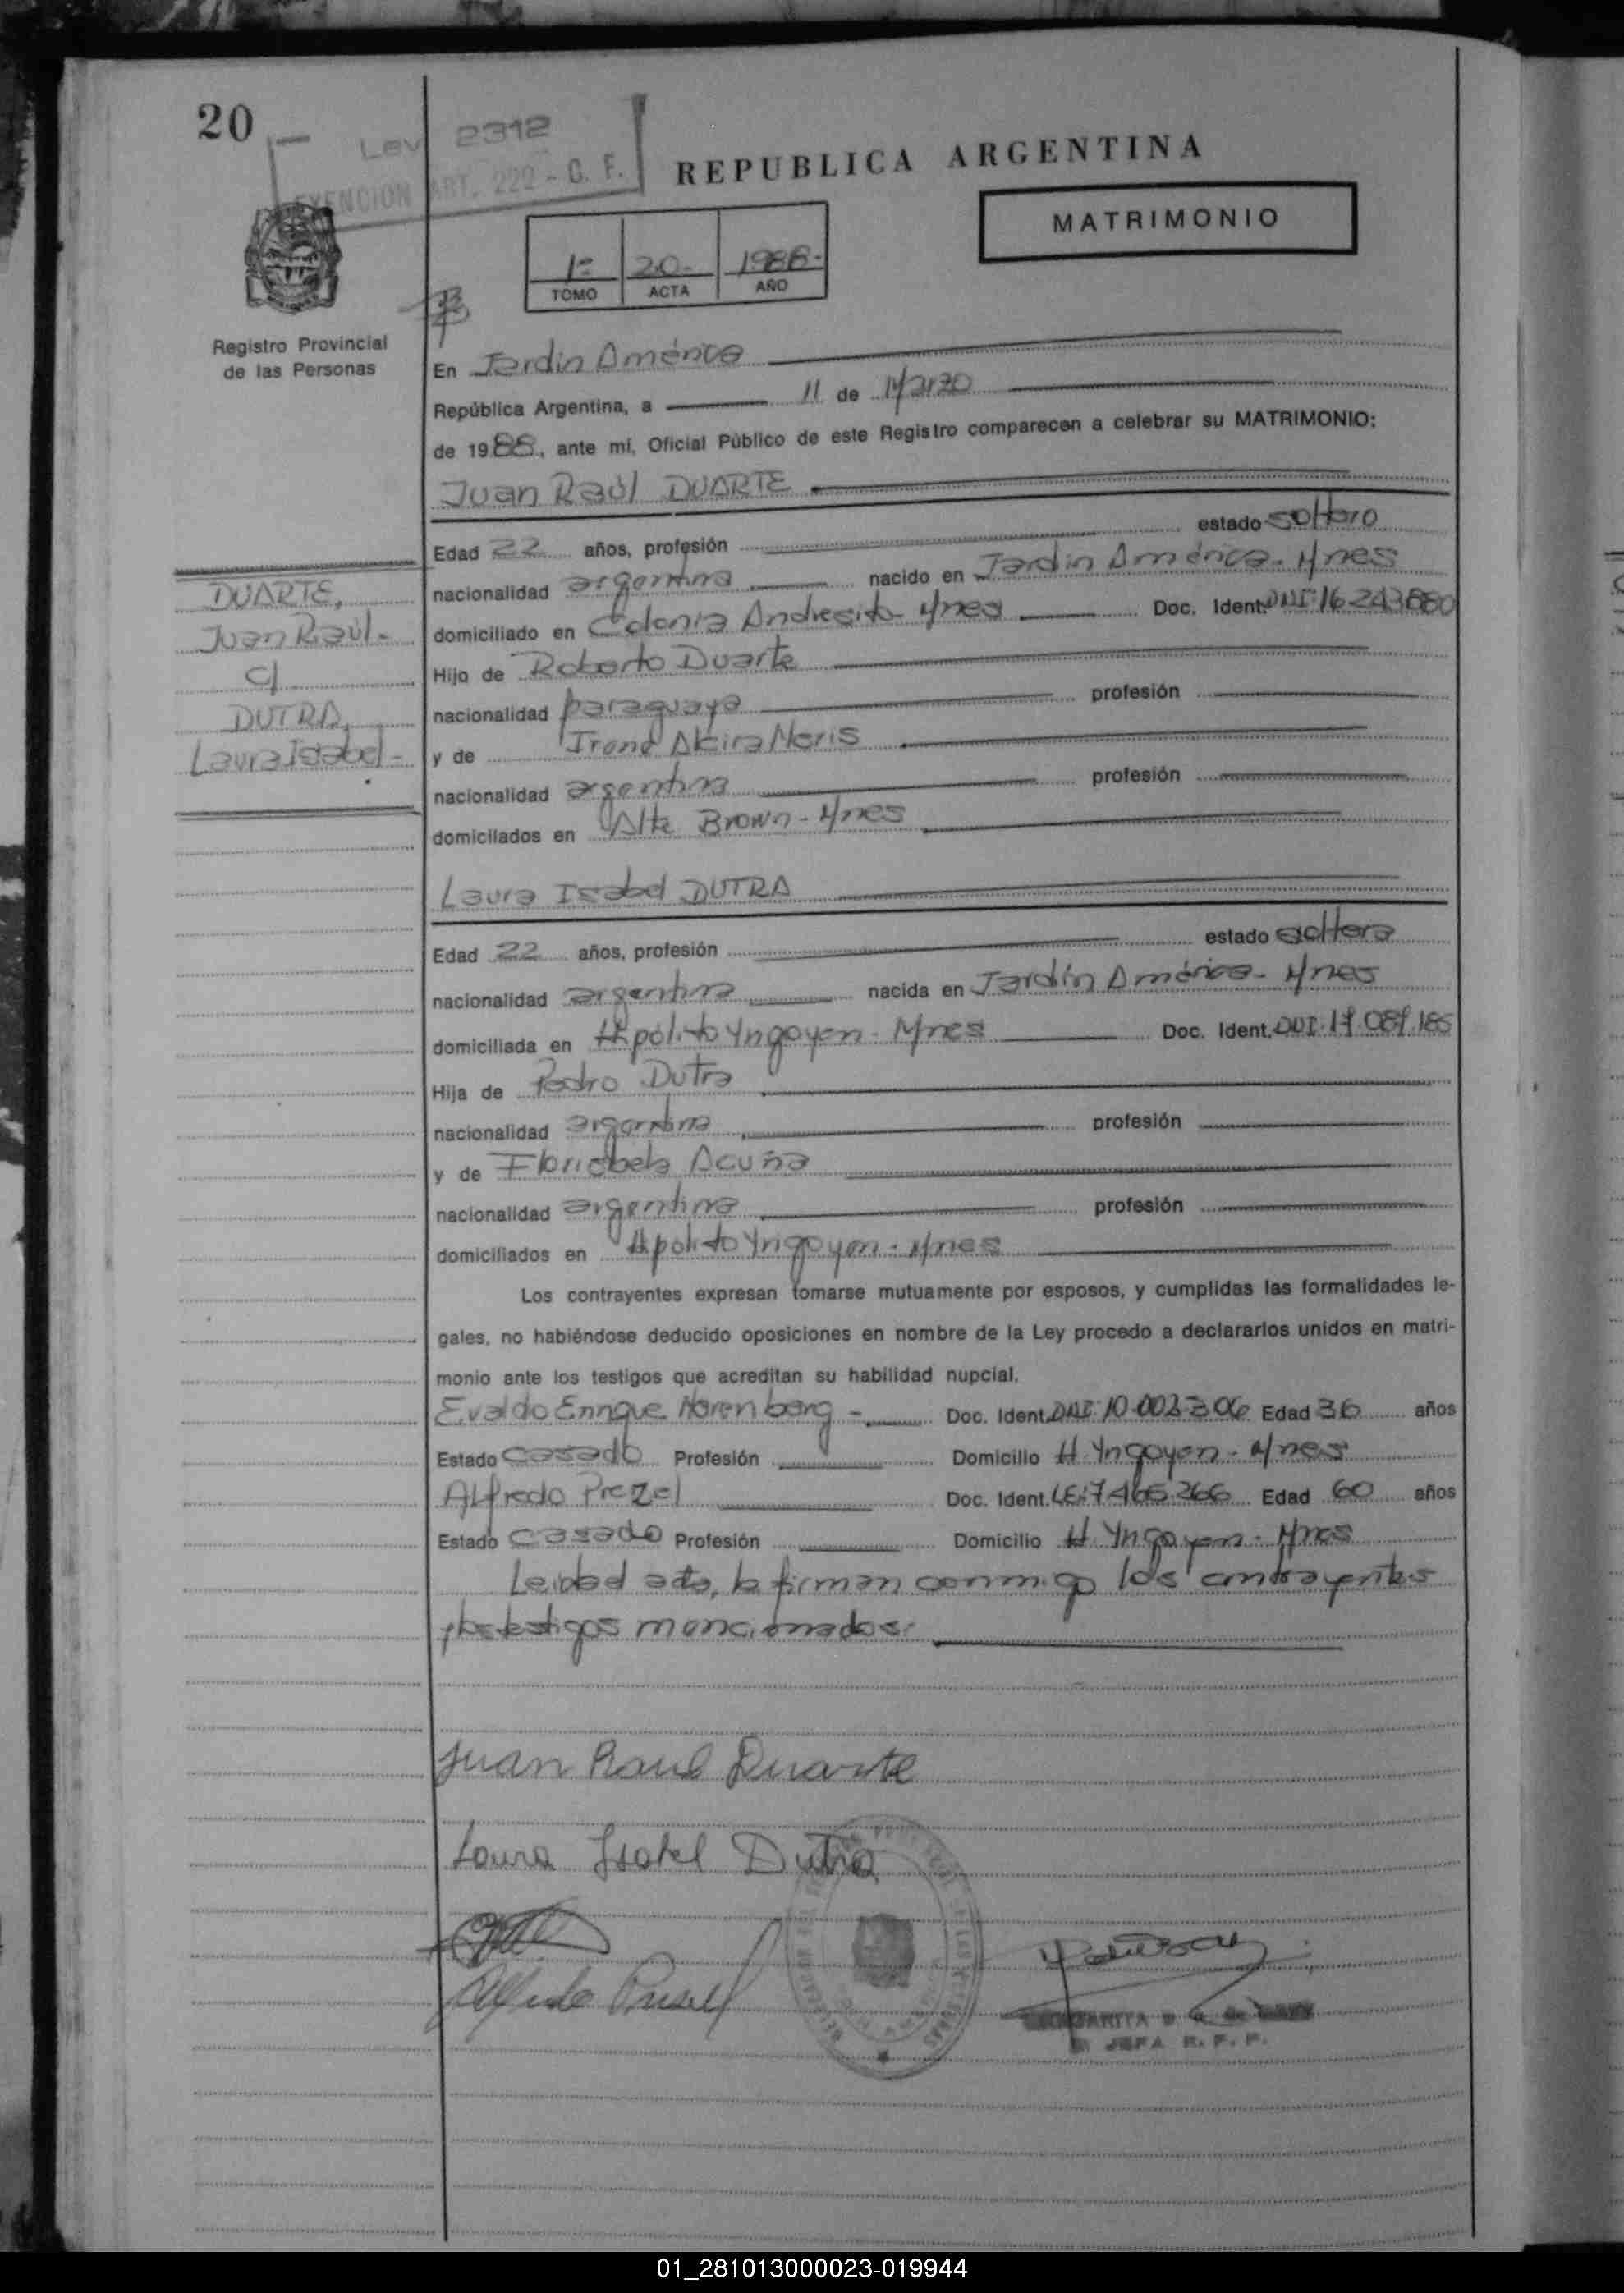 20
Ley 2312
EXENCION ART. 222 - C. F.
REPUBLICA ARGENTINA
MATRIMONIO
1º 20- 1988-
TOMO ACTA AÑO
Registro Provincial
de las Personas
En Jardin América
República Argentina, a 11 de Marzo
de 1988, ante mí, Oficial Público de este Registro comparecen a celebrar su MATRIMONIO:
Juan Raúl DUARTE
Edad 22 años, profesión estado soltero
nacionalidad argentina nacido en Jardin América - Mnes
domiciliado en Colonia Andresito - Mnes Doc. Ident. DNI: 16.243.880
Hijo de Roberto Duarte
nacionalidad paraguaya profesión
y de Irene Alcira Neris
nacionalidad argentina profesión
domiciliados en Alte Brown - Mnes
DUARTE,
Juan Raúl -
c/
DUTRA,
Laura Isabel -
Laura Isabel DUTRA
Edad 22 años, profesión estado soltera
nacionalidad argentina nacida en Jardín América - Mnes
domiciliada en Hipólito Yrigoyen - Mnes Doc. Ident. DNI. 17.089.185
Hija de Pedro Dutra
nacionalidad argentina profesión
y de Acuña
nacionalidad argentina profesión
domiciliados en Hipólito Yrigoyen - Mnes
Los contrayentes expresan tomarse mutuamente por esposos, y cumplidas las formalidades le-
gales, no habiéndose deducido oposiciones en nombre de la Ley procedo a declararlos unidos en matri-
monio ante los testigos que acreditan su habilidad nupcial.
Evaldo Enrique Norenberg - Doc. Ident. DNI: 10.002.306 Edad 36 años
Estado casado Profesión Domicilio H. Yrigoyen - Mnes
Alfredo Prezel Doc. Ident. LE: 7.465.266 Edad 60 años
Estado casado Profesión Domicilio H. Yrigoyen - Mnes
Leidad acta, la firman conmigo los contrayentes
y los testigos mencionados.
Juan Raul Duarte
Laura Isabel Dutra
Alfredo
JEFA R. P. P.
01_281013000023-019944